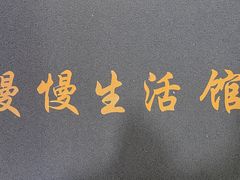 慢慢生活馆